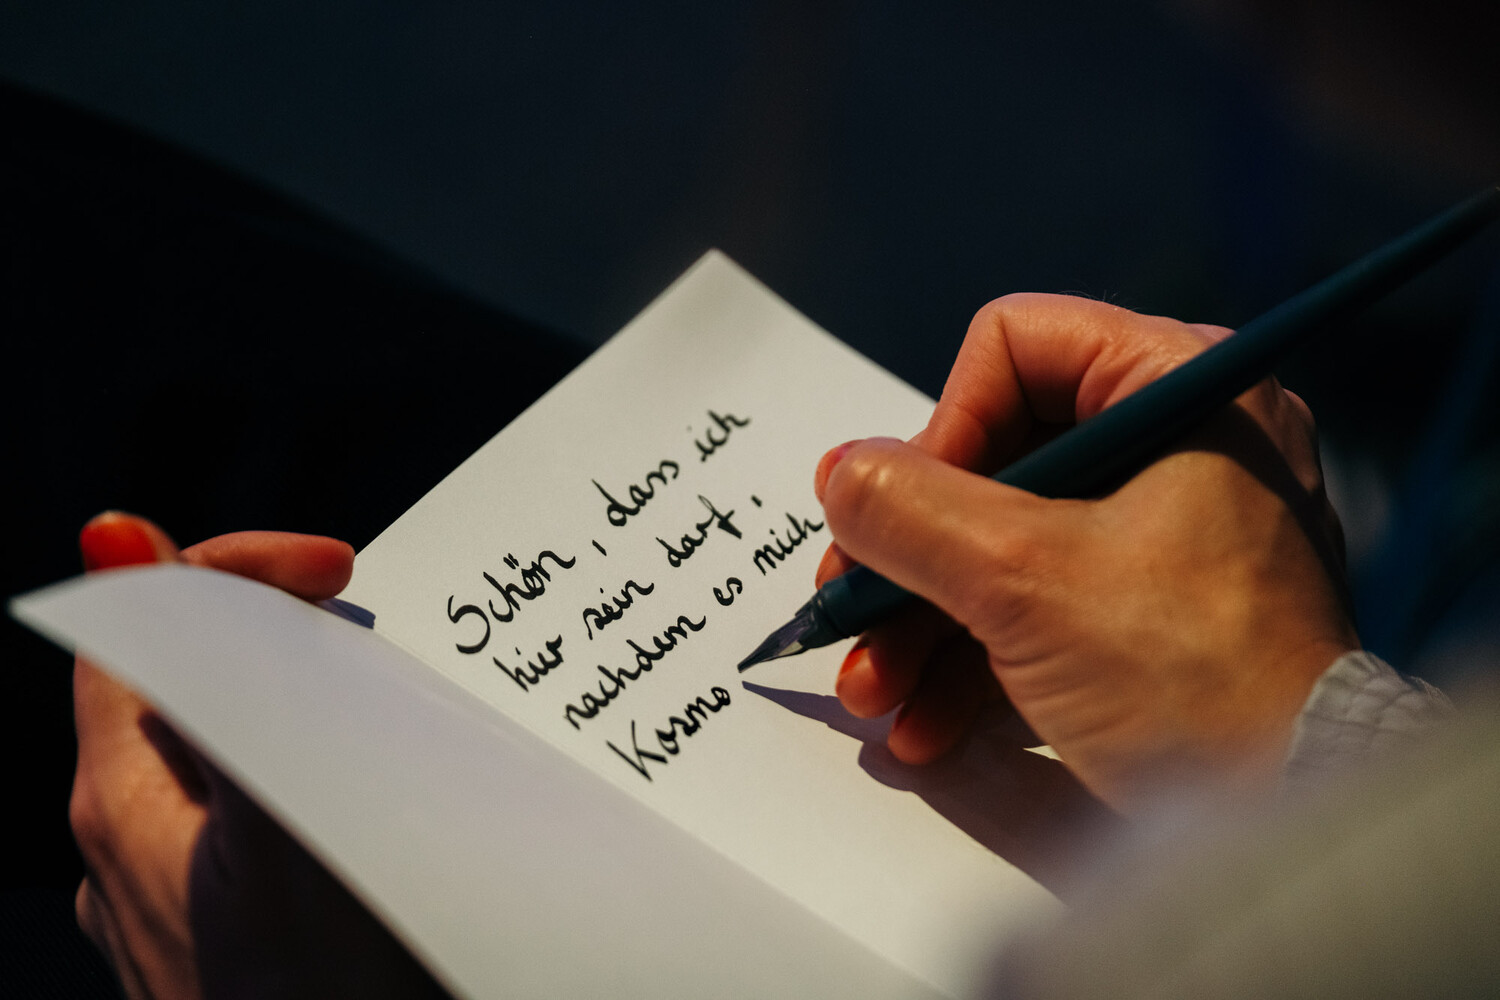 Schön, dass ich
hier sein darf,
nachdem es mich
Kosmo